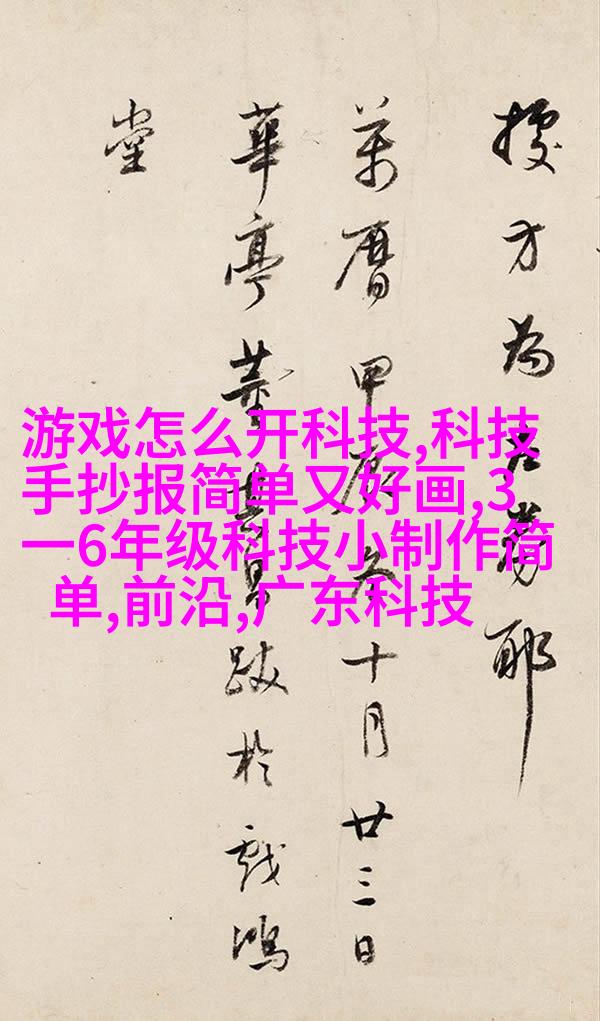 游戏怎么开科技,科技
手抄报简单又好画,3
一6年级科技小制作简
单,前沿,广东科技
方為君勞耶
萬曆甲辰冬十月廿三日
華亭董其昌跋於戲鴻
堂